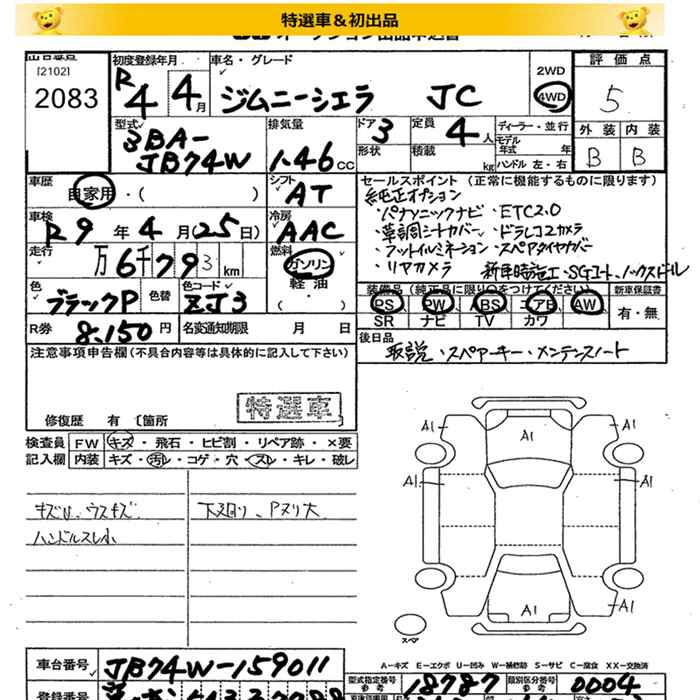 特選車＆初出品
仙台会場
[2102]
2083
初度登録年月
R4 4月
車名・グレード
ジムニーシエラ JC
2WD
4WD
評価点
5
外装 内装
B B
型式
3BA-
JB74W
排気量
1.46 CC
ドア 3
形状
定員 4人
積載 kg
ディーラー・並行
モデル
年式 年
ハンドル 左・右
車歴
自家用・( )
シフト
AT
車検
R9年4月(25日)
冷房
AAC
走行
万6千793km
燃料
ガソリン
軽油
( )
色
ブラックP
色替
色コード
ZJ3
R券
8,150円
名変通知期限 月 日
セールスポイント (正常に機能するものに限ります)
純正オプション
・パナソニックナビ・ETC2.0
・革調シートカバー・ドラレコ2カメラ
・フットイルミネーション・スペアタイヤカバー
・リヤカメラ
新車時施工・SGコート、ノックスドール
装備品(純正品に限り○をつけてください)
PS PW ABS エアB AW
SR ナビ TV カワ
新車保証書
有・無
後日品
取説・スペアーキー・メンテンスノート
注意事項申告欄(不具合内容等は具体的に記入して下さい)
特選車
修復歴 有 〔箇所
検査員
記入欄
FW キズ・飛石・ヒビ割・リペア跡・×要
内装 キズ・汚レ・コゲ・穴・スレ・キレ・破レ
キズU、ウスキズ
ハンドルスレ小
下廻り、Pヌリ大
A1
A1
A1
A1
A1
A1
A1
スペア
A－キズ E－エクボ U－凹み W－補修跡 S－サビ C－腐食 XX－交換済
車台番号
JB74W-159011
型式指定番号
参考
18787
類別区分番号
参考
0004
登録番号